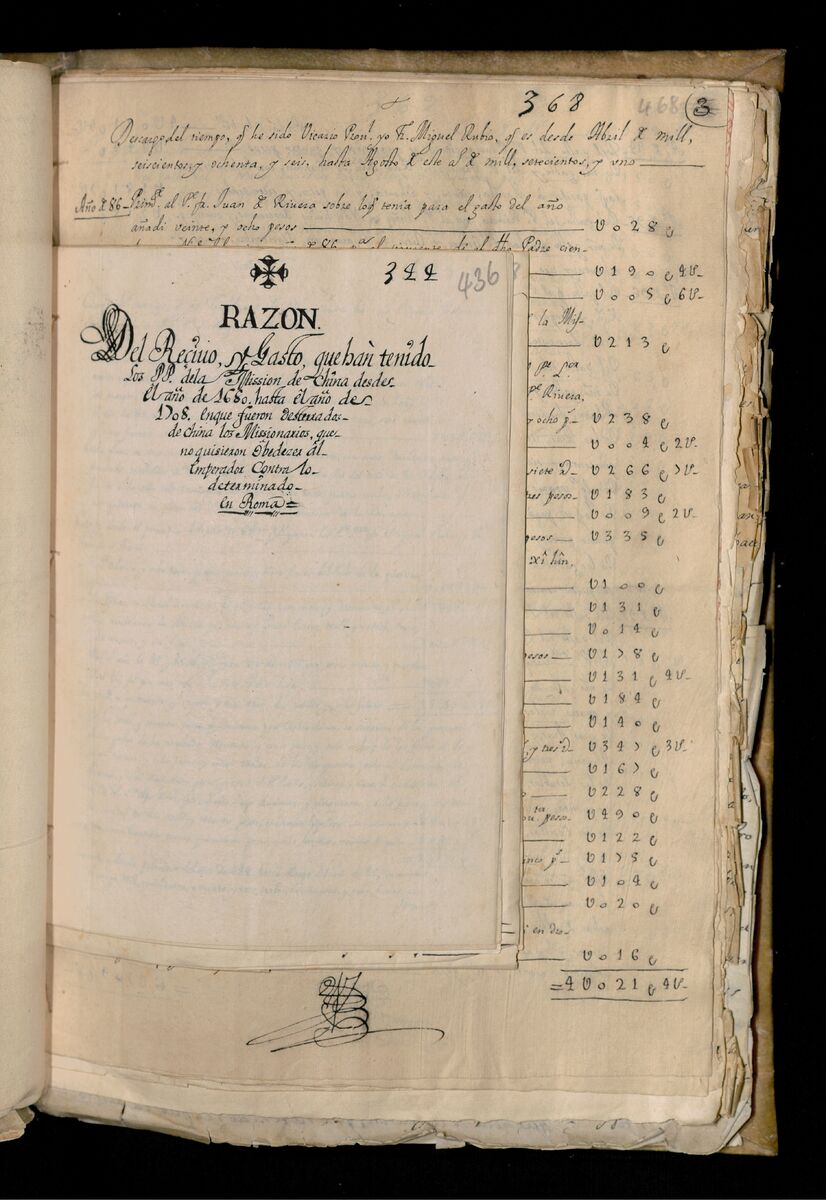 368
468
3
Descargo del tiempo, q̃ he sido Vicario Prou.l yo Fr. Miguel Rubio, q̃ es desde Abril de mill,
seiscientos, y ochenta, y seis, hasta Agosto de este al de mill, setecientos, y uno
Año de 86
al Pe. fr. Juan de Rivera sobre lo q̃ tenia para el gasto del año
añadi veinte, y ocho pesos U028
Padre cien-
U190 4U
U005 6U
la Mis-
U213
Rivera,
y ocho ps U238
U004 2U
siete U266 7U
tres pesos U183
U009 2U
pesos U335
xi hñ,
U100
U131
U014
pesos U178
U131 4U
U184
U140
y tres U347 3U
U167
U228
ta pesos U490
U122
inco ps U175
U104
U020
en dro-
U016
=4U021 4U
344
436
RAZON.
Del Reciuio, y Gasto, que han tenido
Los PP. dela Mission de China desde
el año de 1680. hasta el año de
1708. en que fueron desterrados
de China los Missionarios, que
no quisieron obedezer al
Emperador contra lo
determinado
en Roma